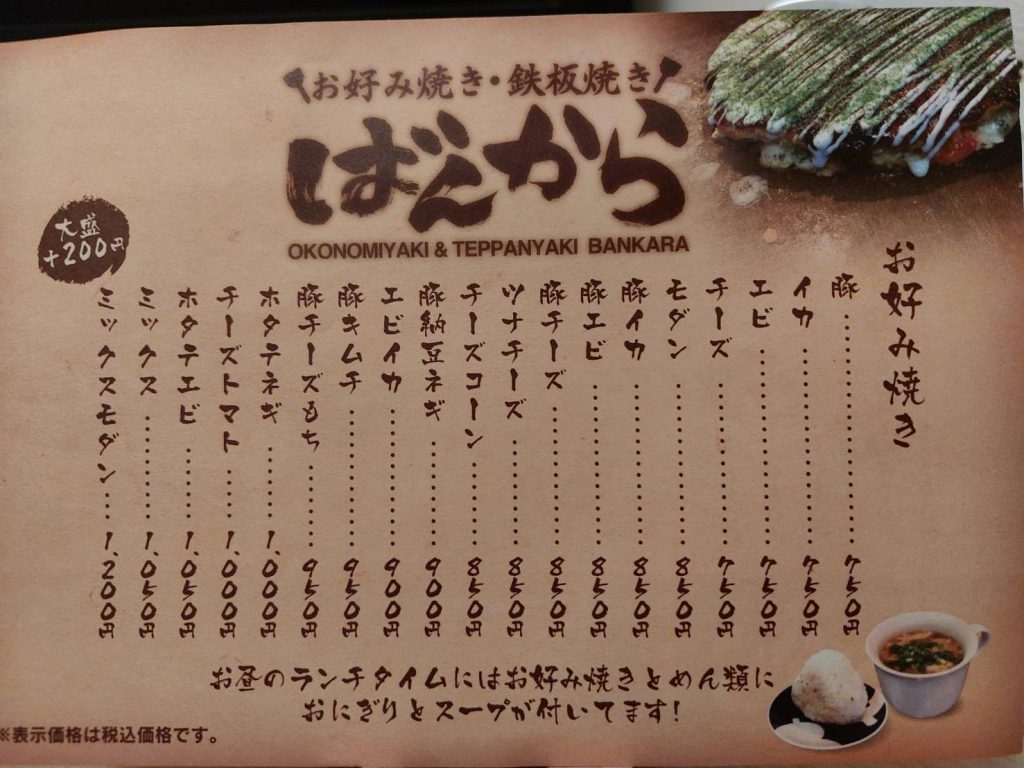 お好み焼き・鉄板焼き
ばんから
OKONOMIYAKI & TEPPANYAKI BANKARA
お好み焼き
豚…………750円
イカ…………750円
エビ…………750円
チーズ…………750円
モダン…………850円
豚イカ…………850円
豚エビ…………850円
豚チーズ…………850円
ツナチーズ…………850円
チーズコーン…………850円
豚納豆ネギ…………900円
エビイカ…………900円
豚キムチ…………950円
豚チーズもち…………950円
ホタテネギ…………1,000円
チーズトマト…………1,000円
ホタテエビ…………1,050円
ミックス…………1,050円
ミックスモダン…………1,200円
大盛
+200円
お昼のランチタイムにはお好み焼きとめん類に
おにぎりとスープが付いてます!
※表示価格は税込価格です。